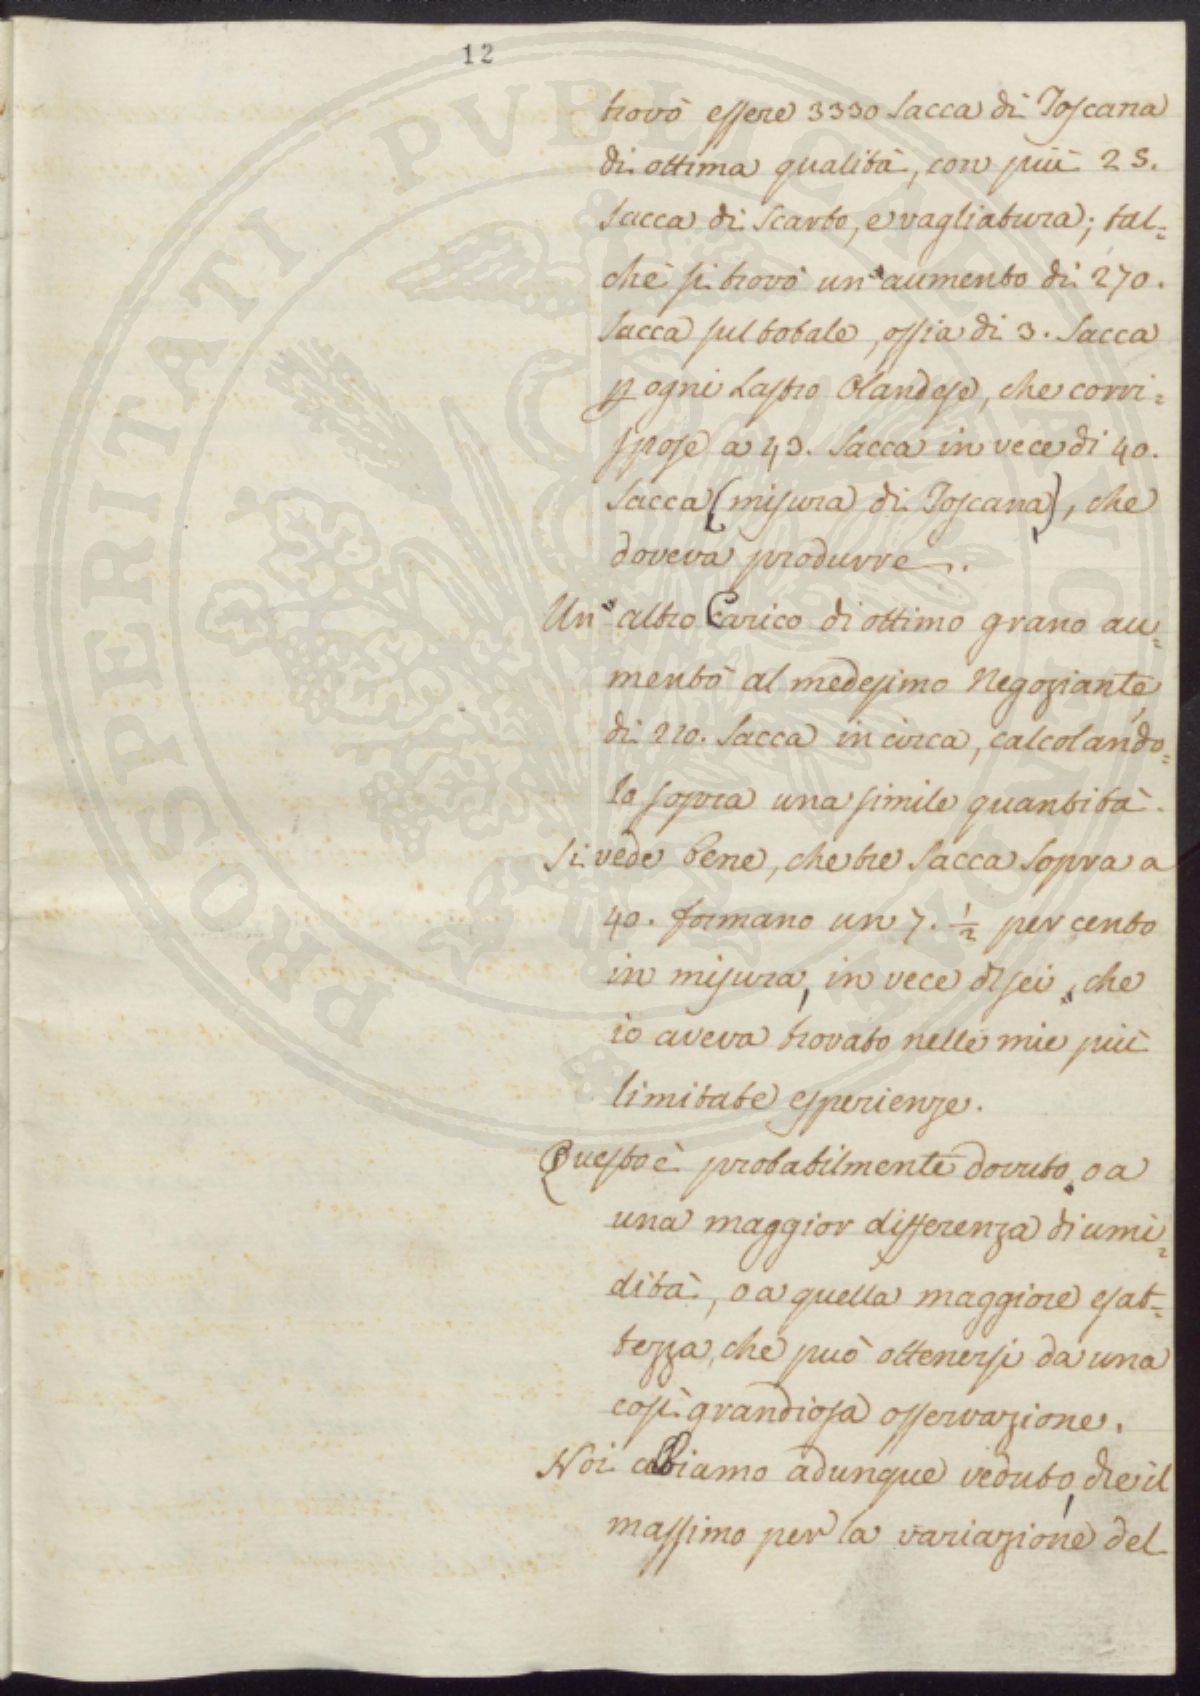 12
trovò essere 3330 Sacca di Toscana
di ottima qualità, con più 25.
Sacca di Scarto, e vagliatura; tal=
chè si trovò un'aumento di 270.
Sacca sul totale, ossia di 3. Sacca
p ogni Lastro Olandese, che corri=
spose a 43. Sacca in vece di 40.
Sacca (misura di Toscana), che
doveva produrre.
Un'altro Carico di ottimo grano au=
mentò al medesimo Negoziante,
di 220. Sacca in circa, calcolando=
lo sopra una simile quantità.
Si vede bene, che tre Sacca sopra a
40. formano un 7. 1/2 per cento
in misura, in vece di sei, che
io aveva trovato nelle mie più
limitate esperienze.
Questo è probabilmente dovuto, o a
una maggior differenza di umi=
dità, o a quella maggiore esat=
tezza, che può ottenersi da una
così grandiosa osservazione.
Noi abbiamo adunque veduto, che il
massimo per la variazione del
PROSPERITATI PUBLICAE